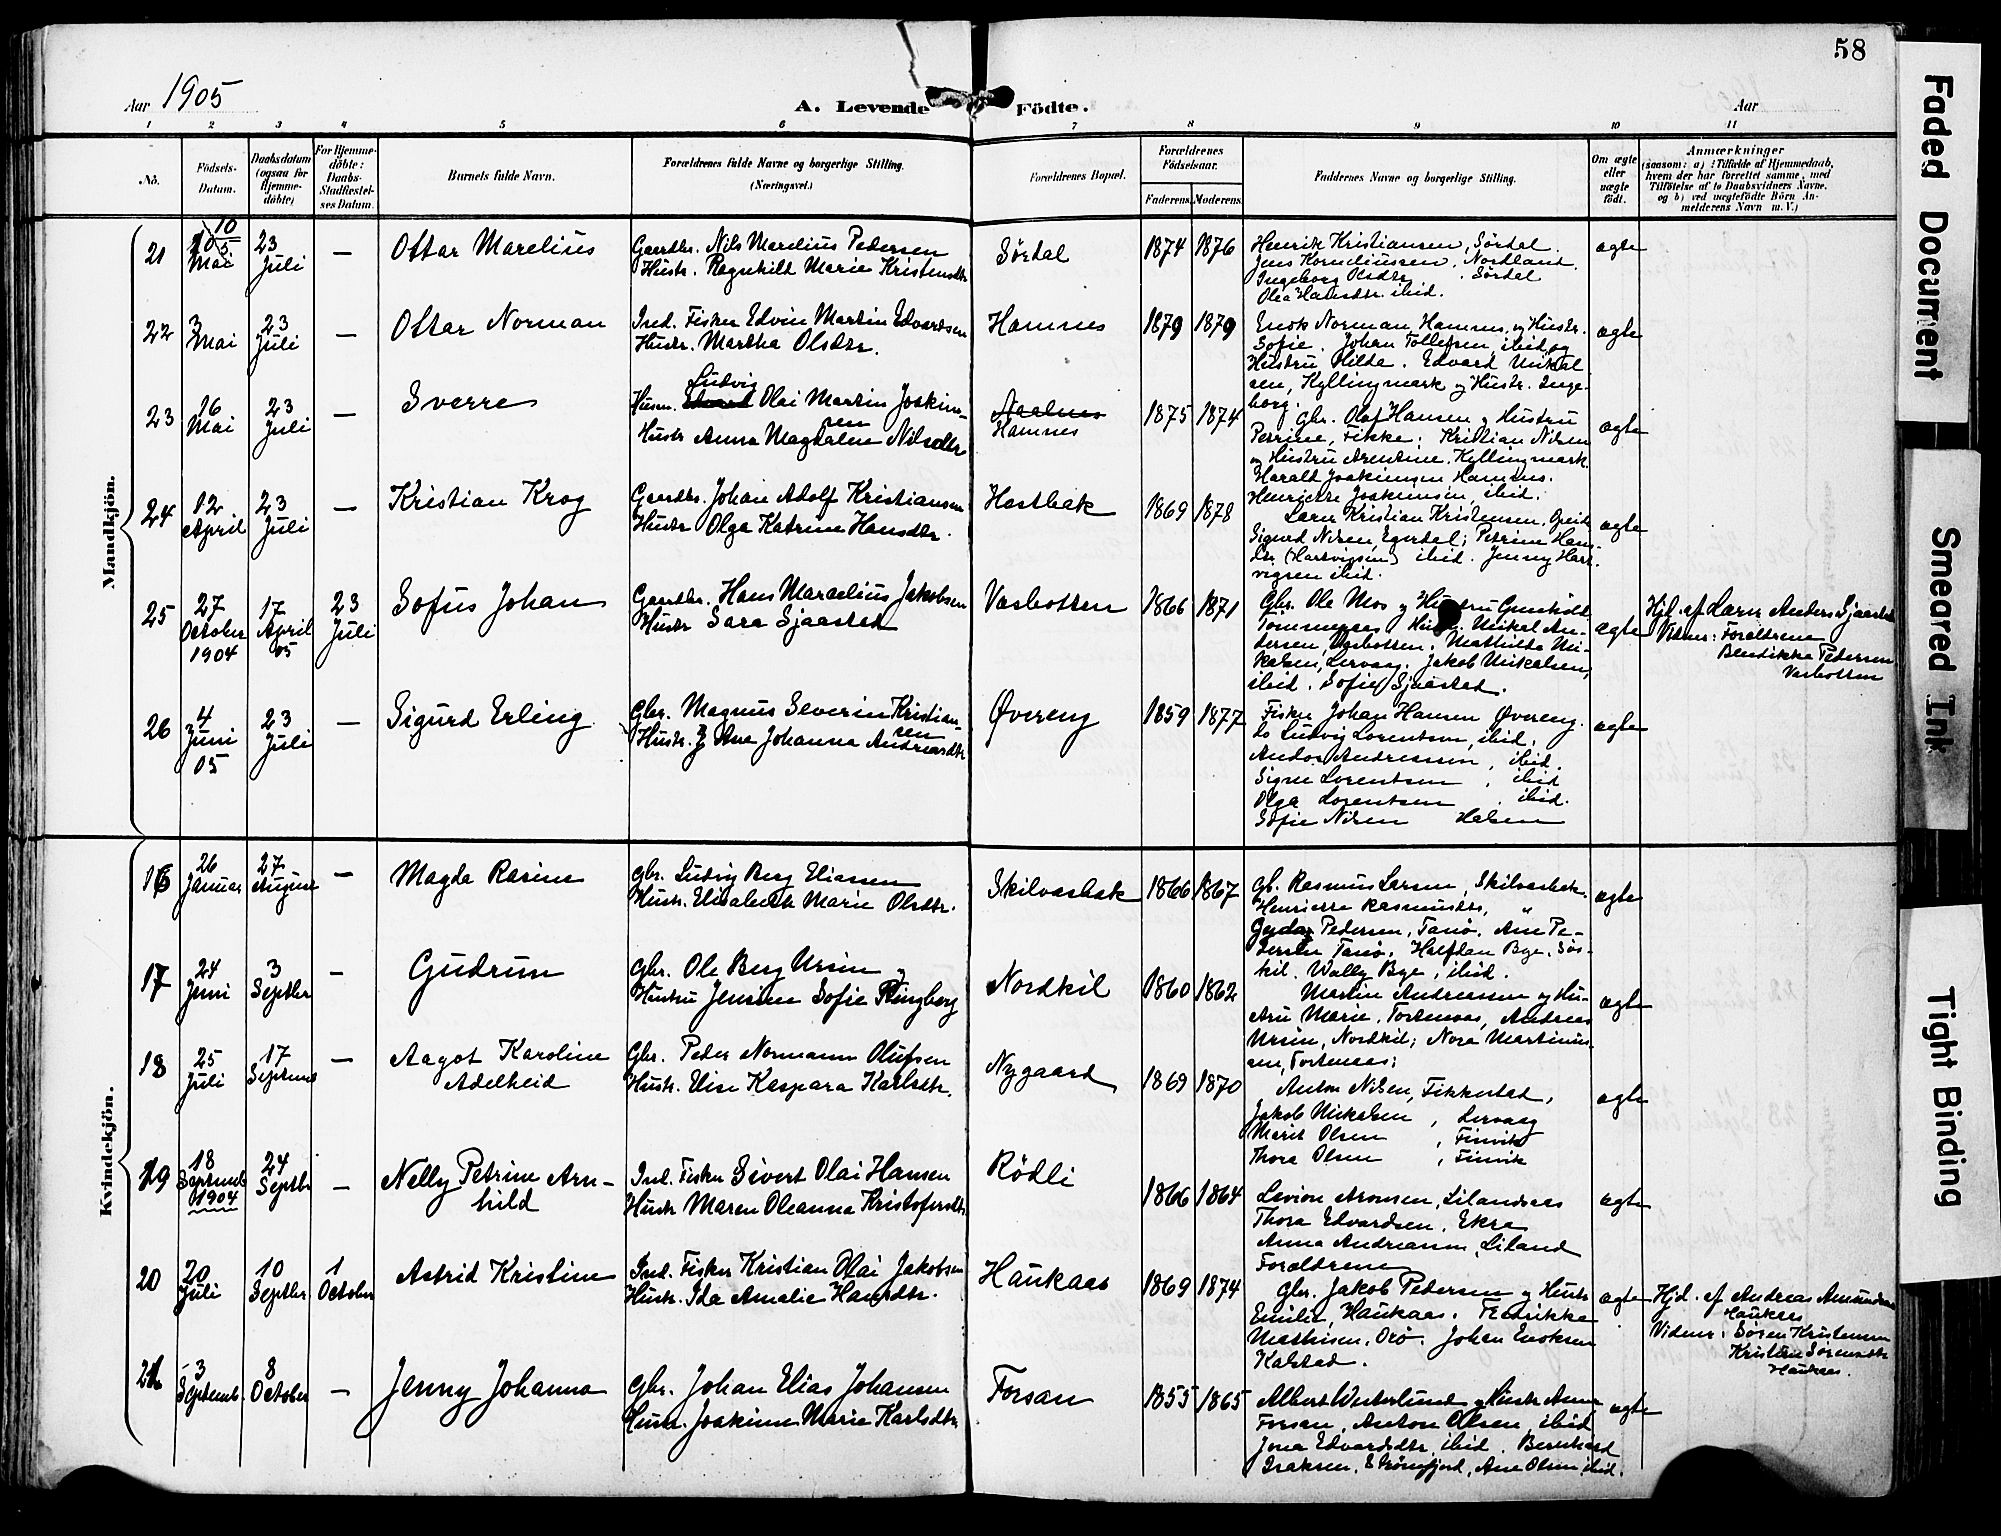 58
Aar 1905
A. Levende Födte.
Aar
1 2 3 4 5 6 7 8 9 10 11
No.
Födsels-
Datum.
Daabsdatum
(ogsaa for
Hjemme-
döbte)
For Hjemme-
döbte:
Daabs-
Stadfæstel-
ses Datum.
Barnets fulde Navn.
Forældrenes fulde Navne og borgerlige Stilling.
(Næringsvei.)
Forældrenes Bopæl.
Forældrenes
Födselsaar.
Faderens Moderens
Faddernes Navne og borgerlige Stilling.
Om ægte
eller
uægte
födt.
Anmærkninger
(saasom: a) i Tilfælde af Hjemmedaab,
hvem der har forrettet samme, med
Tilföielse af to Daabsvidners Navne,
og b) ved uægtefödte Börn An-
melderens Navn m. V.)
Mandkjön.
21
10/5
Mai
23
Juli
—
Ottar Marelius
Gaardbr. Nils Marelius Pedersen
Hustr. Ragnhild Marie Kristensdtr
Sørdal
1874 1876
Henrik Kristiansen, Sørdal.
Jens Korneliussen, Nordland.
Ingeborg Olsdtr, Sørdal
Olea Hansdtr. ibid.
ægte
22
3
Mai
23
Juli
—
Ottar Norman
Ind. Fisker Edvin Martin Edvardsen
Hustr. Martha Olsdtr.
Hamnes
1879 1879
Enok Norman, Hamnes, og Hustr.
Sofie. Johan Tollefsen ibid, og
Hustru Hilda. Edvard Mikal
sen, Kyllingmark og Hustr. Inge-
borg.
ægte
23
16
Mai
23
Juli
—
Sverre
Ludvig
Husm. Edvard Olai Martin Joakim-
sen
Hustr Anna Magdalene Nilsdtr
Hamnes
1875 1874
Gbr. Olaf Hansen og Hustru
Perrine, Fikke; Kristian Nilsen
og Hustru Arentine, Kyllingmark
Harald Joakimsen Hamnes.
Henriette Joakimsen, ibid.
ægte
24
12
April
23
Juli
—
Kristian Krog
Gaardbr. Johan Adolf Kristiansen
Hustr Olga Katrine Hansdtr.
Hostbak
1869 1878
Lærer Kristian Kristensen,
Sigurd Nilsen Egerdal; Petrine Hans-
dtr. (Hartvigsen) ibid. Jenny Hart
vigsen ibid.
ægte
25
27
October
1904
17
April
05
23
Juli
Sofus Johan
Gaardbr. Hans Marcelius Jakobsen
Hustr Sara Sjaastad
Vasbotten
1866 1871
Gbr. Ole Mos og Hustru Gunhild
Tømmeraas, Mikal An-
dersen, Vasbotten. Mathilda Mi-
kalsen, Lervaag. Jakob Mikalsen,
ibid. Sofie Sjaastad.
ægte
Hjd. af Lærer Anders Sjaastad
Vidner: Forældrene
Bendikke Pedersen
Vasbotten
26
4
Juni
05
23
Juli
—
Sigurd Erling
Gbr. Magnus Severin Kristian-
sen
Hustr. Ane Johanna Andreasdtr
Øvereng
1859 1877
Fisker Johan Hansen Øvereng.
do Ludvig Lorentsen, ibid.
Andor Andreassen, ibid.
Signe Lorentsen, ibid
Olga Lorentsen, ibid.
Sofie Nilsen Halsen
ægte
Kvindekjön.
16
26
Januar
27
August
—
Magda Rasine
Gbr. Ludvig Berg Eliassen
Hustr. Elisabeth Marie Olsdtr.
Skilvasbak
1866 1867
Gb. Rasmus Larsen, Skilvasbak
Henriette Rasmusdtr, "
Gyda Pedersen, Tanø, Ane Pe-
dersen Tanø, Halfdan Bye, Søs-
kil. Wally Bye, ibid.
ægte
17
24
Juni
3
Septbr
—
Gudrun
Gbr. Ole Berg Ursin og
Hustru Jensine Sofie Ringberg
Nordkil
1860 1862
Martin Andreassen og Hu-
stru Marie, Tortenaas, Andreas
Ursin, Nordkil; Nora Martinus-
sen, Tortenaas;
ægte
18
25
Juli
17
Septemb
—
Aagot Karoline
Adelheid
Gbr. Peder Normann Olufsen
Hustr. Elise Kaspara Karlsdtr.
Nygaard
1869 1870
Anton Nilsen, Fikkestad,
Jakob Mikalsen, Lervaag
Marit Olsen, Finvik
Thora Olsen, Finvik
ægte
19
18
Septemb
1904
24
Septbr
—
Nelly Petrine Arn-
hild
Ind. Fisker Sivert Olai Hansen
Hustr Maren Oleanna Kristofersdtr
Rödli
1866 1864
Levion Aronsen, Lilandsaas
Thora Edvardsen, Ekra
Anna Andreassen, Liland
Forældrene
ægte
20
20
Juli
10
Septbr
1
October
Astrid Kristine
Ind. Fisker Kristian Olai Jakobsen
Hustr. Ida Amalie Hansdtr.
Haukaas
1869 1874
Gbr. Jakob Pedersen og Hustr
Emilie, Haukaas. Fredrikke
Mathisen, Orø. Johan Enoksen
Kalstad.
ægte
Hjd. af Andreas Amundsen
Haukaas
Vidner: Søren Kristensen
Kristine Sörensdtr
Haukaas.
21
3
Septemb.
8
October
—
Jenny Johanna
Gbr. Johan Elias Johansen
Hustr. Joakime Marie Karlsdtr
Forsan
1855 1865
Albert Westerlund og Hustr Anna
Forsan, Anton Olsen, ibid
Jona Edvardsdtr, ibid. Bernhard
Isaksen, Strømfjord, Ane Olsen ibid.
ægte
Faded Document
Smeared Ink
Tight Binding